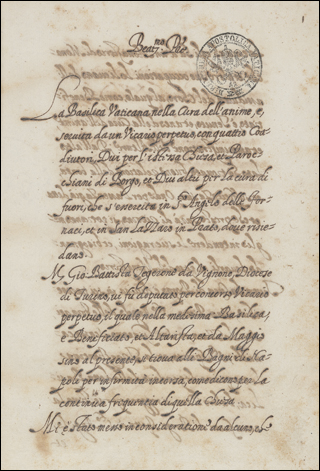 Beat.mo Pre
La Basilica Vaticana nella Cura dell'anime, è
seruita da un Vicario perpetuo, con quattro Coa-
diutori. Dui per l'istessa Chiesa, et Paroc-
chiani di Borgo, et Dui altri per la cura di
fuori, che s'essercita in S. Angelo delle For-
naci, et in San Lazaro in Prato, doue risie-
dano.
M. Gio. Battista da Vignone, Diocese
di Turino, ui fù deputato per conuerso Vicario
perpetuo, il quale nella medesima Basilica,
è Benefitiato, et Altarista, et da Maggio
sino al presente, si troua alle Bagni di Na-
poli per infirmità incorsa, come dicono, per la
continua frequentia di quella Chiesa
Mi è stato messo in consideratione da alcuno, ch